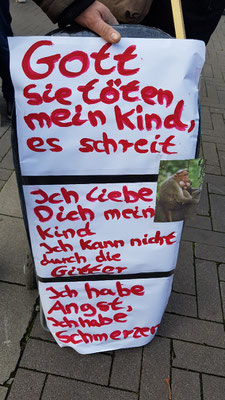 Gott
sie töten
mein Kind,
es schreit
Ich liebe
Dich mein
Kind
Ich kann nicht
durch die
Gitter
Ich habe
Angst,
ich habe
Schmerzen